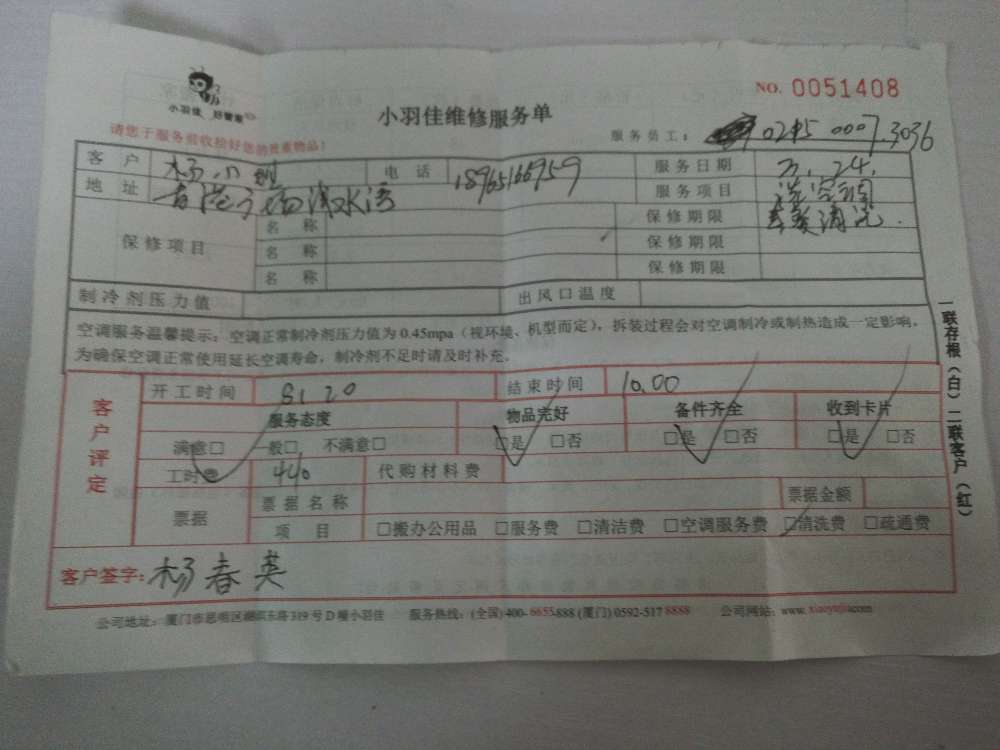 小羽佳 好管家
NO. 0051408
小羽佳维修服务单
请您于服务前收检好您的贵重物品!
服务员工: 0215 0007.3036
客户 电话 18965166959 服务日期 5.24.
地址 香港广场浅水湾 服务项目 洗空调
保修项目 名称 保修期限 清洗.
名称 保修期限
名称 保修期限
制冷剂压力值 出风口温度
空调服务温馨提示:空调正常制冷剂压力值为0.45mpa(视环境、机型而定),拆装过程会对空调制冷或制热造成一定影响。
为确保空调正常使用延长空调寿命,制冷剂不足时请及时补充。
客户评定
开工时间 8:20 结束时间 10.00
服务态度 物品完好 备件齐全 收到卡片
满意□ 一般□ 不满意□ □是 □否 □是 □否 □是 □否
工时费 440 代购材料费
票据 票据名称 票据金额
项目 □搬办公用品 □服务费 □清洁费 □空调服务费 □清洗费 □疏通费
客户签字: 杨春英
公司地址:厦门市思明区湖滨东路319号D幢小羽佳 服务热线:(全国)400-6655888 (厦门)0592-517 8888 公司网站:www.xiaoyujia.com
一联存根(白)二联客户(红)